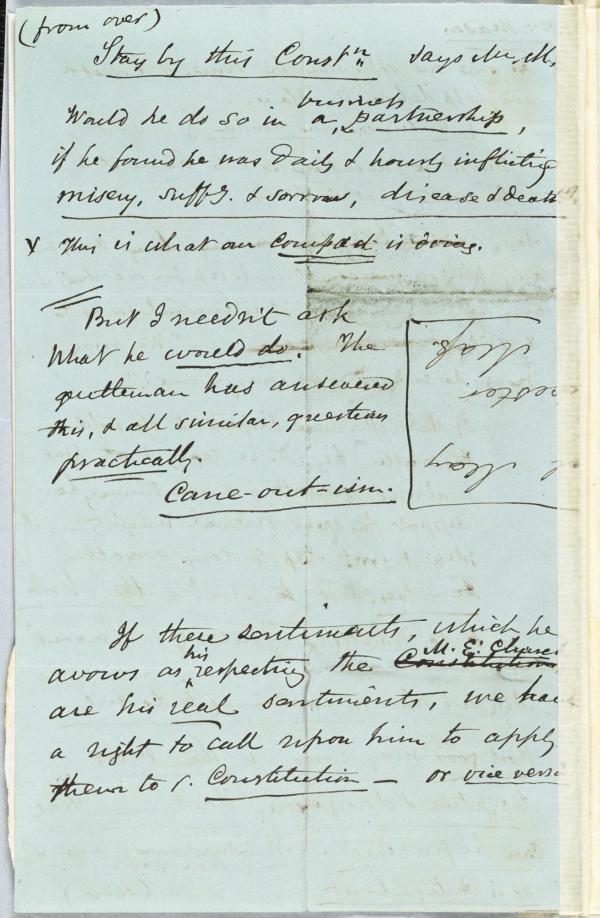 (from over)
Stay by this Const'n says Mr. M.
business
Would he do so in a partnership,
if he found he was daily & hourly inflicting
misery, suffg. & sorrow, disease & death
x This is what our compact is doing.
But I needn't ask
what he would do. The
gentleman has answered
this, & all similar, questions
practically.
Come-out-ism.
If these sentiments, which he
M. E. Church
avows as his respecting the Constitution
are his real sentiments, we have
a right to call upon him to apply
them to Constitution — or vice versa